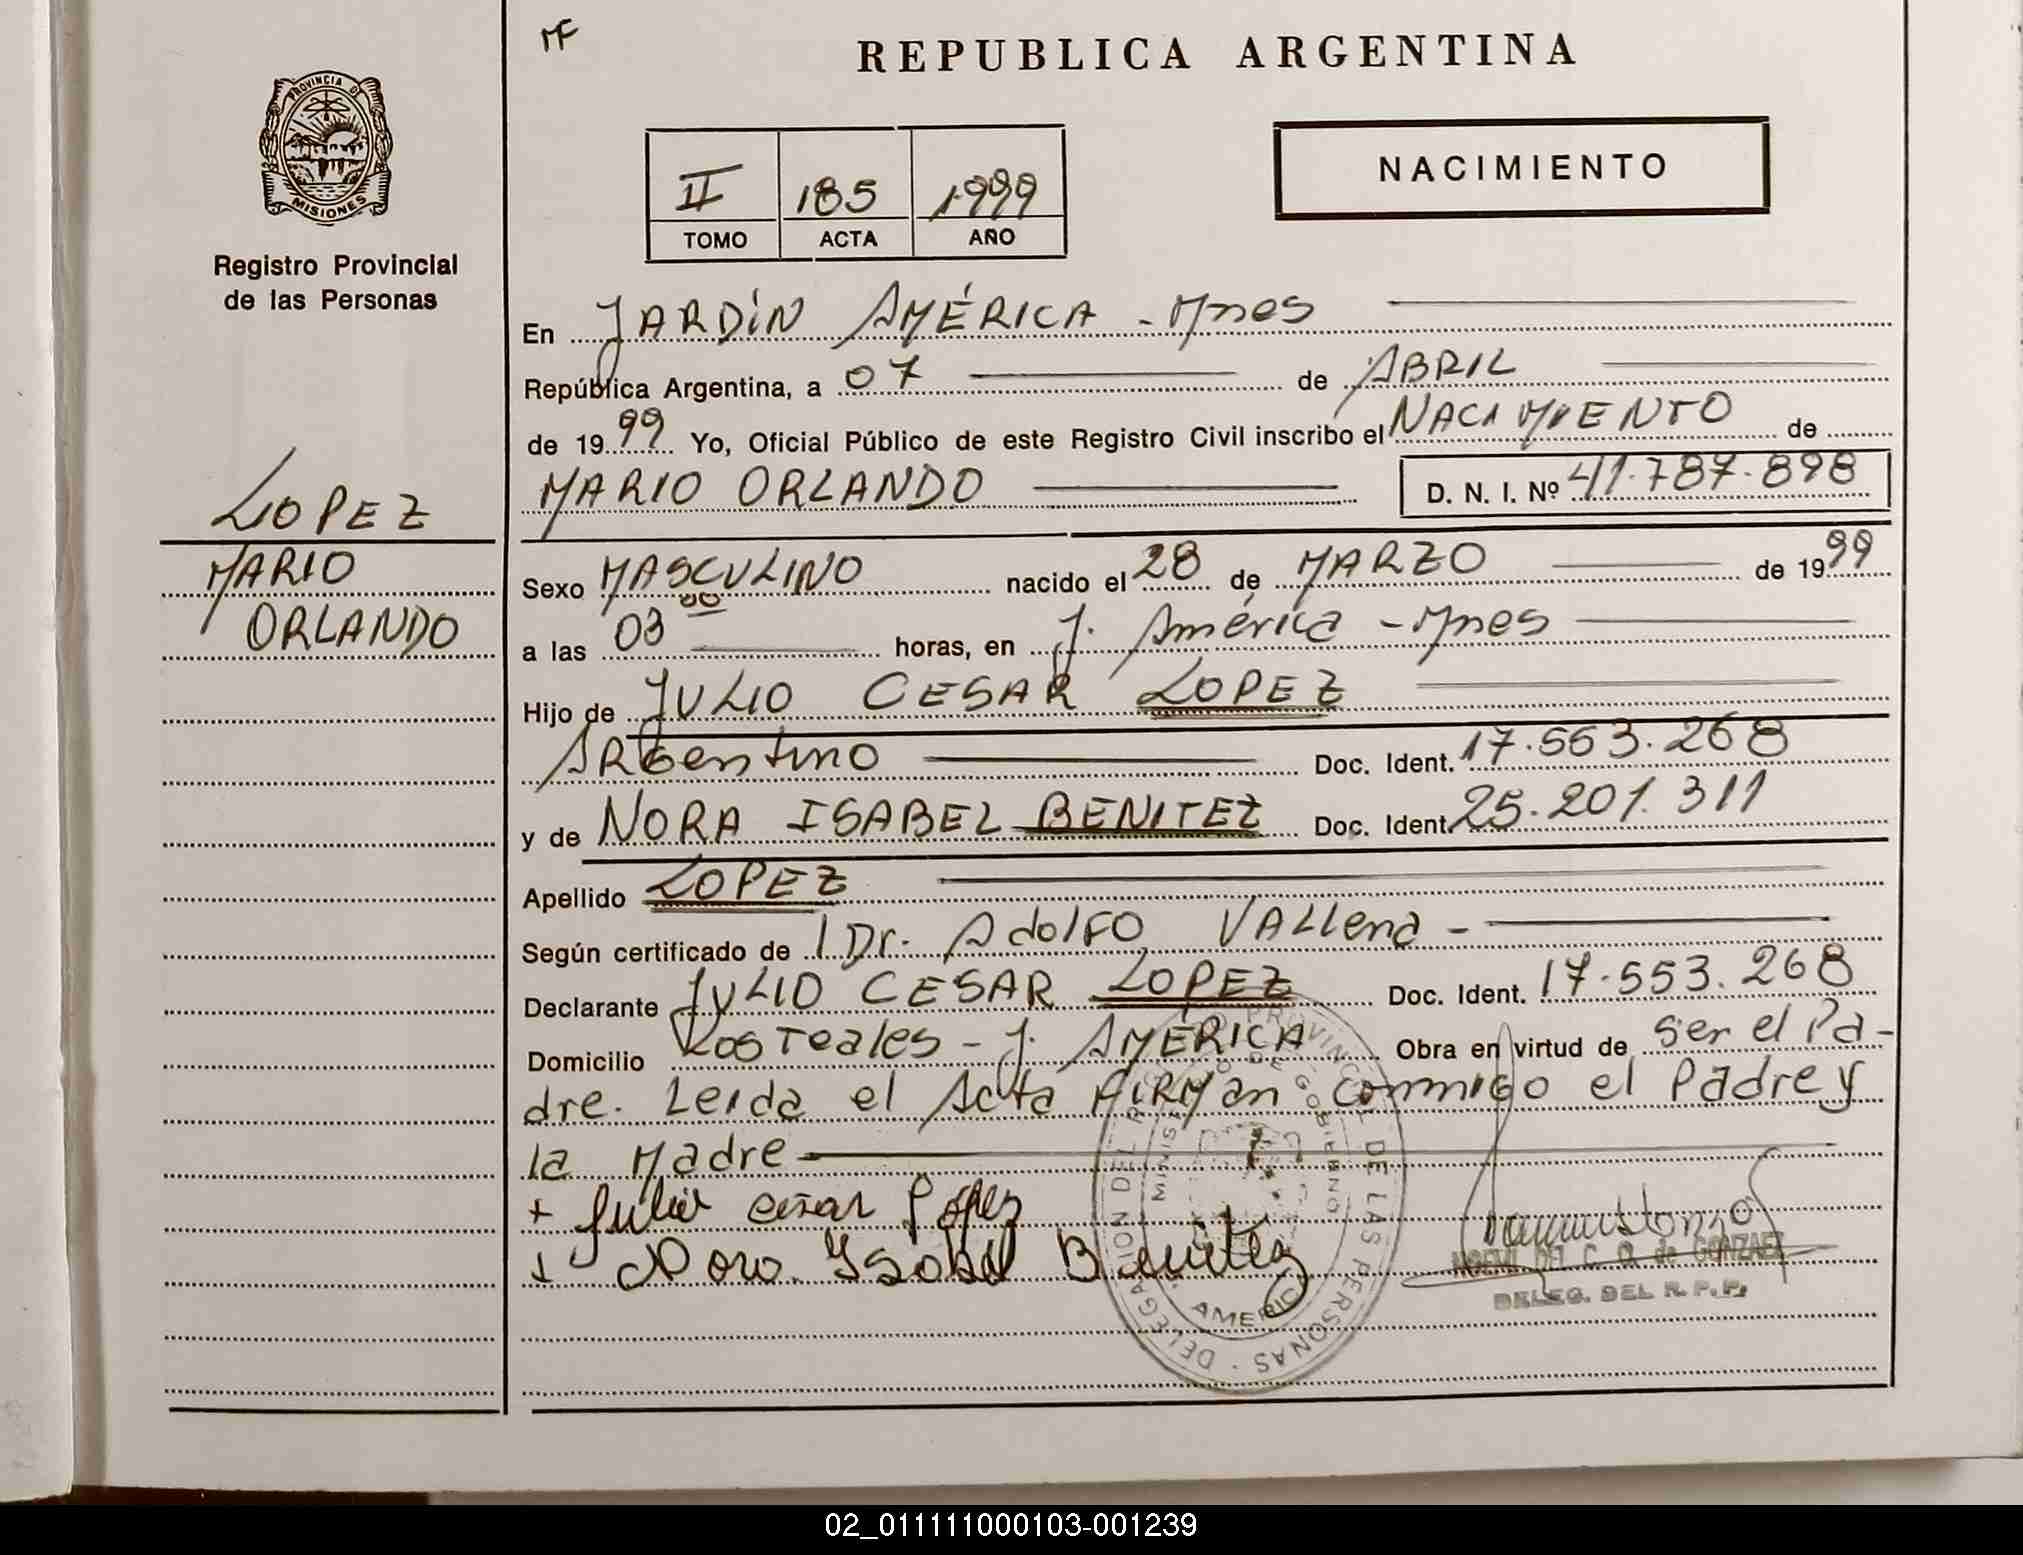 MF
REPUBLICA ARGENTINA
PROVINCIA DE
MISIONES
Registro Provincial
de las Personas
II 185 1999
TOMO ACTA AÑO
NACIMIENTO
En JARDÍN AMÉRICA - Mnes
República Argentina, a 07 de ABRIL
de 1999 Yo, Oficial Público de este Registro Civil inscribo el NACIMIENTO de
MARIO ORLANDO D. N. I. Nº 41.787.898
LOPEZ
MARIO
ORLANDO
Sexo MASCULINO nacido el 28 de MARZO de 1999
a las 03 00 horas, en J. América - Mnes
Hijo de JULIO CESAR LOPEZ
Argentino Doc. Ident. 17.553.268
y de NORA ISABEL BENITEZ Doc. Ident. 25.201.311
Apellido LOPEZ
Según certificado de Dr. Adolfo VALLend -
Declarante JULIO CESAR LOPEZ Doc. Ident. 17.553.268
Domicilio Los Teales - J. AMÉRICA Obra en virtud de Ser el Pa-
dre. Leida el Acta FIRMan conmigo el Padre y
la Madre
+ Julio Cesar López
+ Nora Isabel Benitez
DELEGACION DEL PROVINCIAL DE LAS PERSONAS
DE GOBIERNO
AMERICA
DEL C. G. de GONZALEZ
DELEG. DEL R. P. P.
02_011111000103-001239